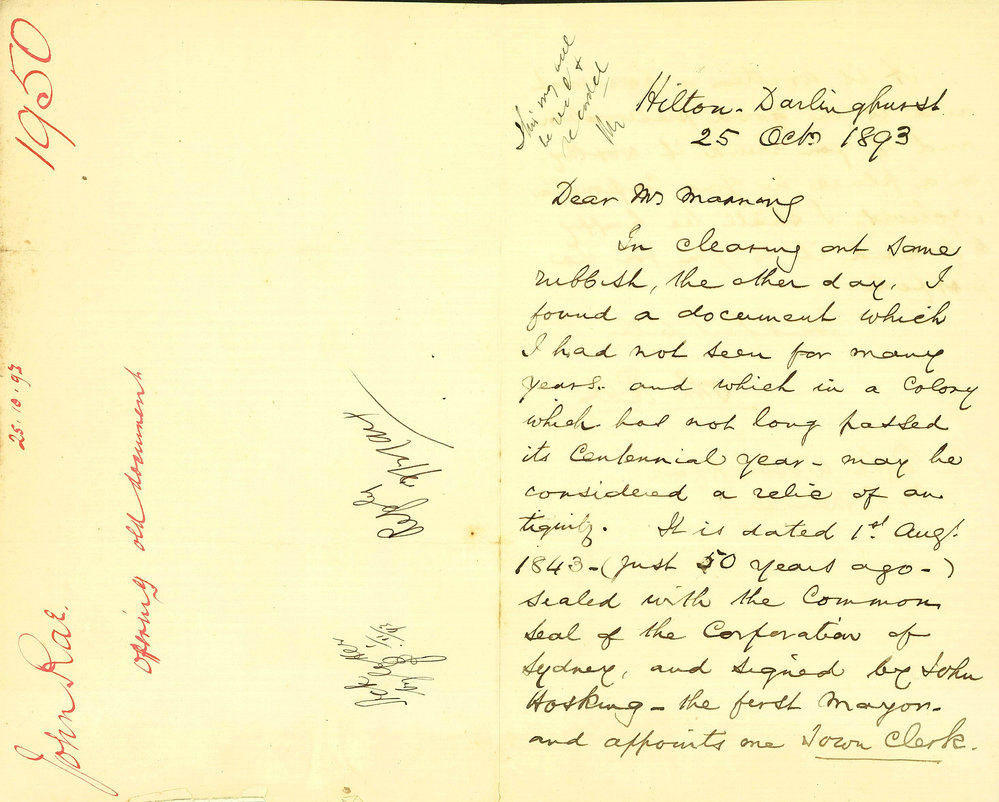 1950
25.10.93
John Rae.
opening old document
Reply
This may well
be recd &
recorded
Hilton - Darlinghurst
25 Octr 1893
Dear Mr Manning
In clearing out some
rubbish, the other day, I
found a document which
I had not seen for many
years - and which in a Colony
which has not long passed
its Centennial Year - may be
considered a relic of an
tiquity. It is dated 1st Augt.
1843 - (just 50 years ago -)
sealed with the Common
Seal of the Corporation of
Sydney, and signed by John
Hosking - the first Mayor -
and appoints me Town Clerk.